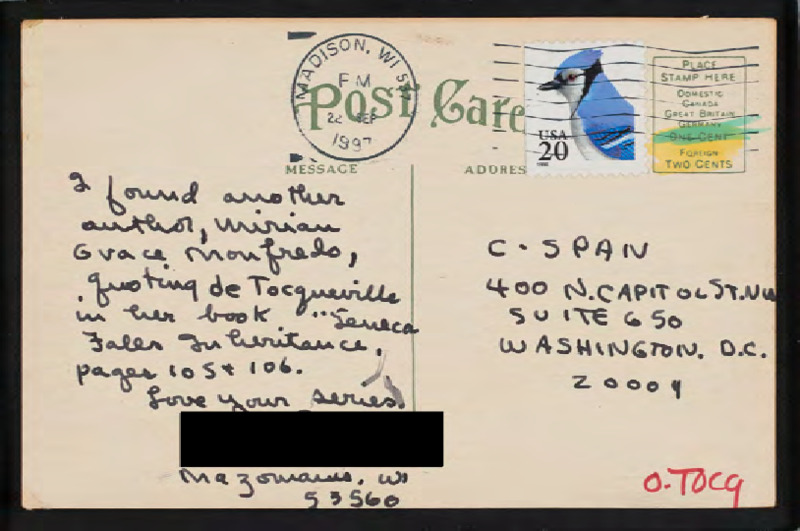 MADISON, WI 537
PM
22 SEP
1997
Post Card
USA
20
PLACE
STAMP HERE
DOMESTIC
CANADA
GREAT BRITAIN
GERMANY
ONE CENT
FOREIGN
TWO CENTS
MESSAGE
I found another
author, Mirian
Grace Monfredo,
quoting de Tocqueville
in her book "Seneca
Falls Inheritance,
pages 105+106.
Love your series
Mazomanie, WI
53560
ADDRES
C-SPAN
400 N. CAPITOL ST. NW
SUITE 650
WASHINGTON. D.C.
20001
O.TOCQ